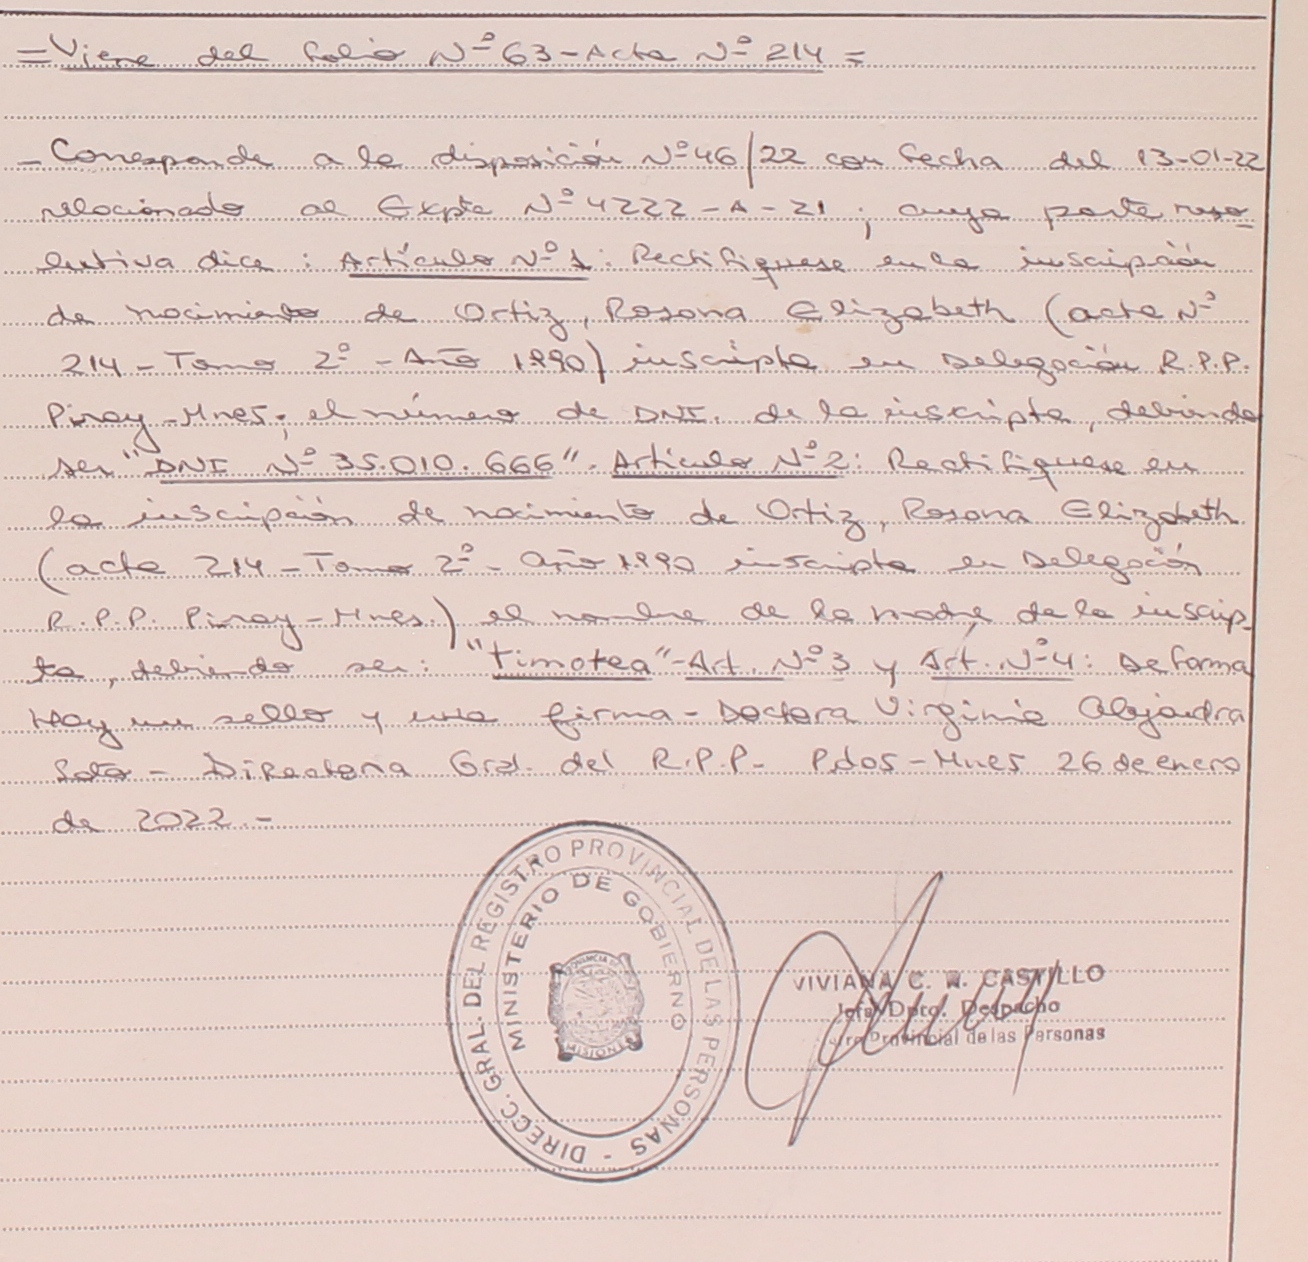 =Viene del folio Nº 63-Acta Nº 214=
- Corresponde a la disposición Nº 46/22 con fecha del 13-01-22
relacionado al Expte Nº 4222-A-21; cuya parte reso
lutiva dice: Artículo Nº 1: Rectifíquese en la inscripción
de nacimiento de Ortiz, Rosana Elizabeth (acta Nº
214-Tomo 2º-Año 1990) inscripta en Delegación R.P.P.
Piray-Mnes; el número de DNI. de la inscripta, debiendo
ser "DNI Nº 35.010.666". Artículo Nº 2: Rectifíquese en
la inscripción de nacimiento de Ortiz, Rosana Elizabeth
(acta 214-Tomo 2º-año 1990 inscripta en Delegación
R.P.P. Piray-Mnes.) el nombre de la madre de la inscrip-
ta, debiendo ser: "timotea"-Art. Nº 3 y Art. Nº 4: De forma
Hay un sello y una firma-Doctora Virginia Alejandra
Soto-Directora Gral. del R.P.P- Pdos-Mnes 26 de enero
de 2022.-
DIRECC. GRAL. DEL REGISTRO PROVINCIAL DE LAS PERSONAS -
MINISTERIO DE GOBIERNO
PROVINCIA DE
MISIONES
VIVIANA C. R. CASTILLO
Jefa Dpto. Despacho
Provincial de las Personas